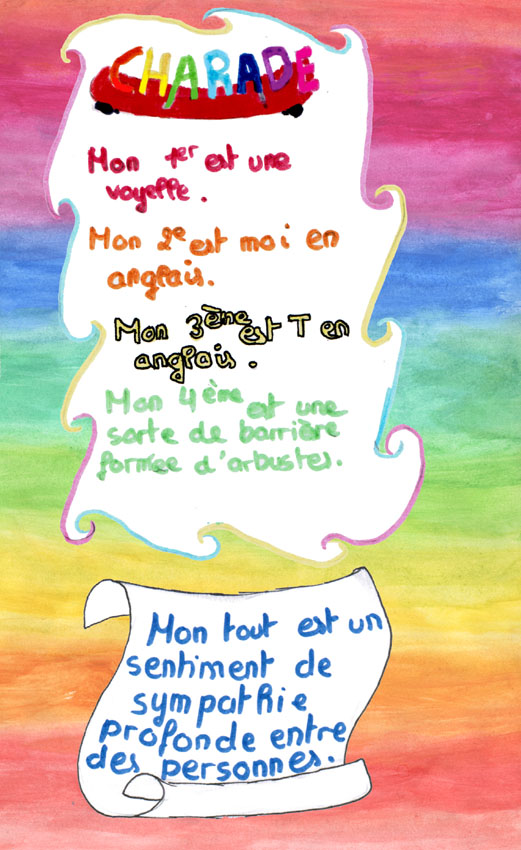 CHARADE
Mon 1er est une
voyelle.
Mon 2e est moi en
anglais.
Mon 3ème est T en
anglais.
Mon 4ème est une
sorte de barrière
formée d'arbustes.
Mon tout est un
sentiment de
sympathie
profonde entre
des personnes.